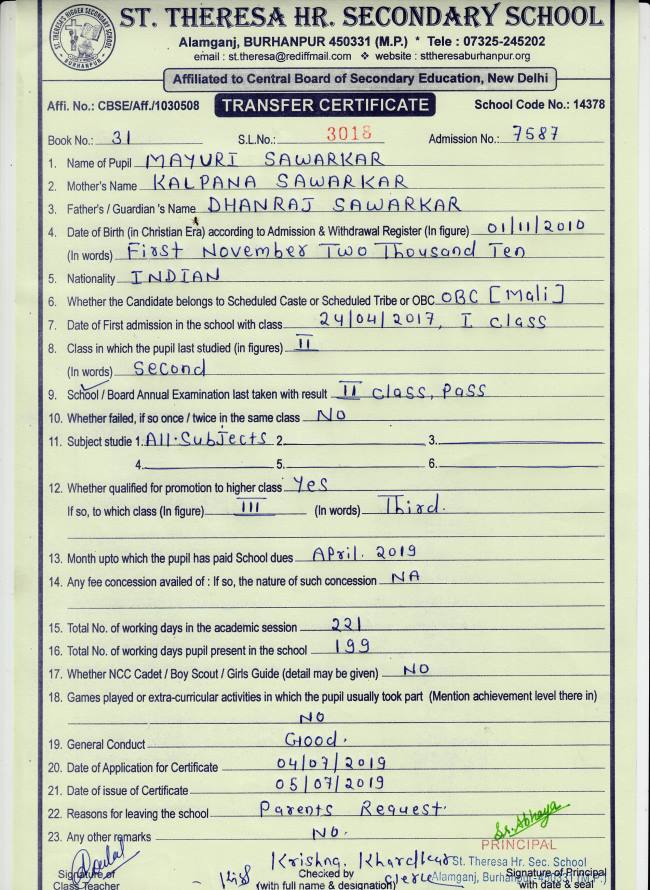 ST. THERESA HR. SECONDARY SCHOOL
Alamganj, BURHANPUR 450331 (M.P.) * Tele : 07325-245202
email : st.theresa@rediffmail.com ❖ website : sttheresaburhanpur.org
Affiliated to Central Board of Secondary Education, New Delhi
Affi. No.: CBSE/Aff./1030508 TRANSFER CERTIFICATE School Code No.: 14378
Book No.: 31 S.L.No.: 3018 Admission No.: 7587
1. Name of Pupil MAYURI SAWARKAR
2. Mother's Name KALPANA SAWARKAR
3. Father's / Guardian 's Name DHANRAJ SAWARKAR
4. Date of Birth (in Christian Era) according to Admission & Withdrawal Register (In figure) 01/11/2010
(In words) First November Two Thousand Ten
5. Nationality INDIAN
6. Whether the Candidate belongs to Scheduled Caste or Scheduled Tribe or OBC OBC [Mali]
7. Date of First admission in the school with class 24/04/2017, I class
8. Class in which the pupil last studied (in figures) II
(In words) Second
9. School / Board Annual Examination last taken with result II class, Pass
10. Whether failed, if so once / twice in the same class NO
11. Subject studie 1. All.Subjects 2. 3.
4. 5. 6.
12. Whether qualified for promotion to higher class Yes
If so, to which class (In figure) III (In words) Third.
13. Month upto which the pupil has paid School dues April. 2019
14. Any fee concession availed of : If so, the nature of such concession NA
15. Total No. of working days in the academic session 221
16. Total No. of working days pupil present in the school 199
17. Whether NCC Cadet / Boy Scout / Girls Guide (detail may be given) NO
18. Games played or extra-curricular activities in which the pupil usually took part (Mention achievement level there in)
NO
19. General Conduct Good.
20. Date of Application for Certificate 04/07/2019
21. Date of issue of Certificate 05/07/2019
22. Reasons for leaving the school Parents Request.
23. Any other remarks NO.
Sr. Abhaya
PRINCIPAL
Krishna. St. Theresa Hr. Sec. School
Signature of Checked by Alamganj, Burhanpur-450331 (M.P.) Signature of Principal
Class Teacher (with full name & designation) with date & seal